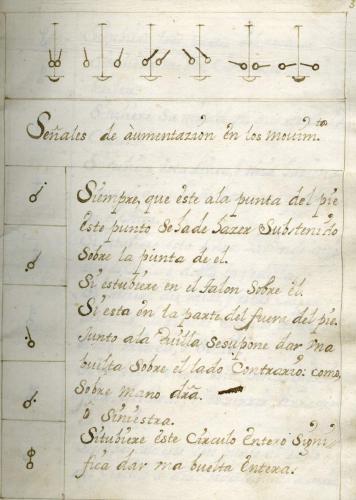 3
Señales de aumentazion en los movim.tos
Siempre, que este ala punta del pie
Este punto Se la de hazer Substenido
Sobre la punta de el.
Si estubiere en el talon Sobre el.
Si esta en la parte del fuera del pie.
Junto ala Quilla Se supone dar vna
buelta Sobre el lado Contrario: como,
Sobre mano drã.
o Siniestra.
Si tubiere este Circulo Entero Signi
fica dar vna buelta Entera.